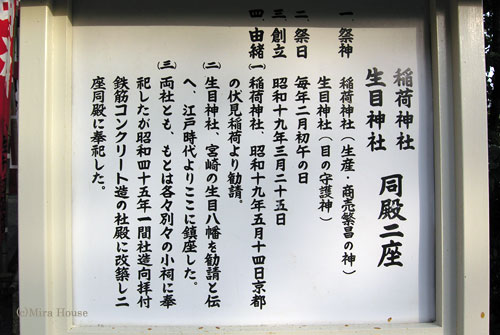 稲荷神社
生目神社
同殿二座
一、祭神
稲荷神社(生産・商売繁昌の神)
生目神社(目の守護神)
二、祭日
毎年二月初午の日
三、創立
昭和十九年三月二十五日
四、由緒
(一)稲荷神社、昭和十九年五月十四日京都
の伏見稲荷より勧請。
(二)生目神社、宮崎の生目八幡を勧請と伝
へ、江戸時代よりここに鎮座した。
(三)両社とも、もとは各々別々の小祠に奉
祀したが昭和四十五年一間社造向拝付
鉄筋コンクリート造の社殿に改築し二
座同殿に奉祀した。
©Mira House